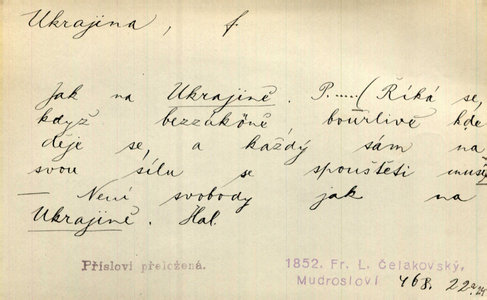 Ukrajina, f.
Jak na Ukrajině. P..... (Říká se,
když bezzákóně bouřlivě kde
děje se, a každý sám na
svou sílu se spoustěti musí
— Není svobody jak na
Ukrajině. Hal.
Přísloví přeložená.
1852. Fr. L. Čelakovský,
Mudrosloví 468. 22